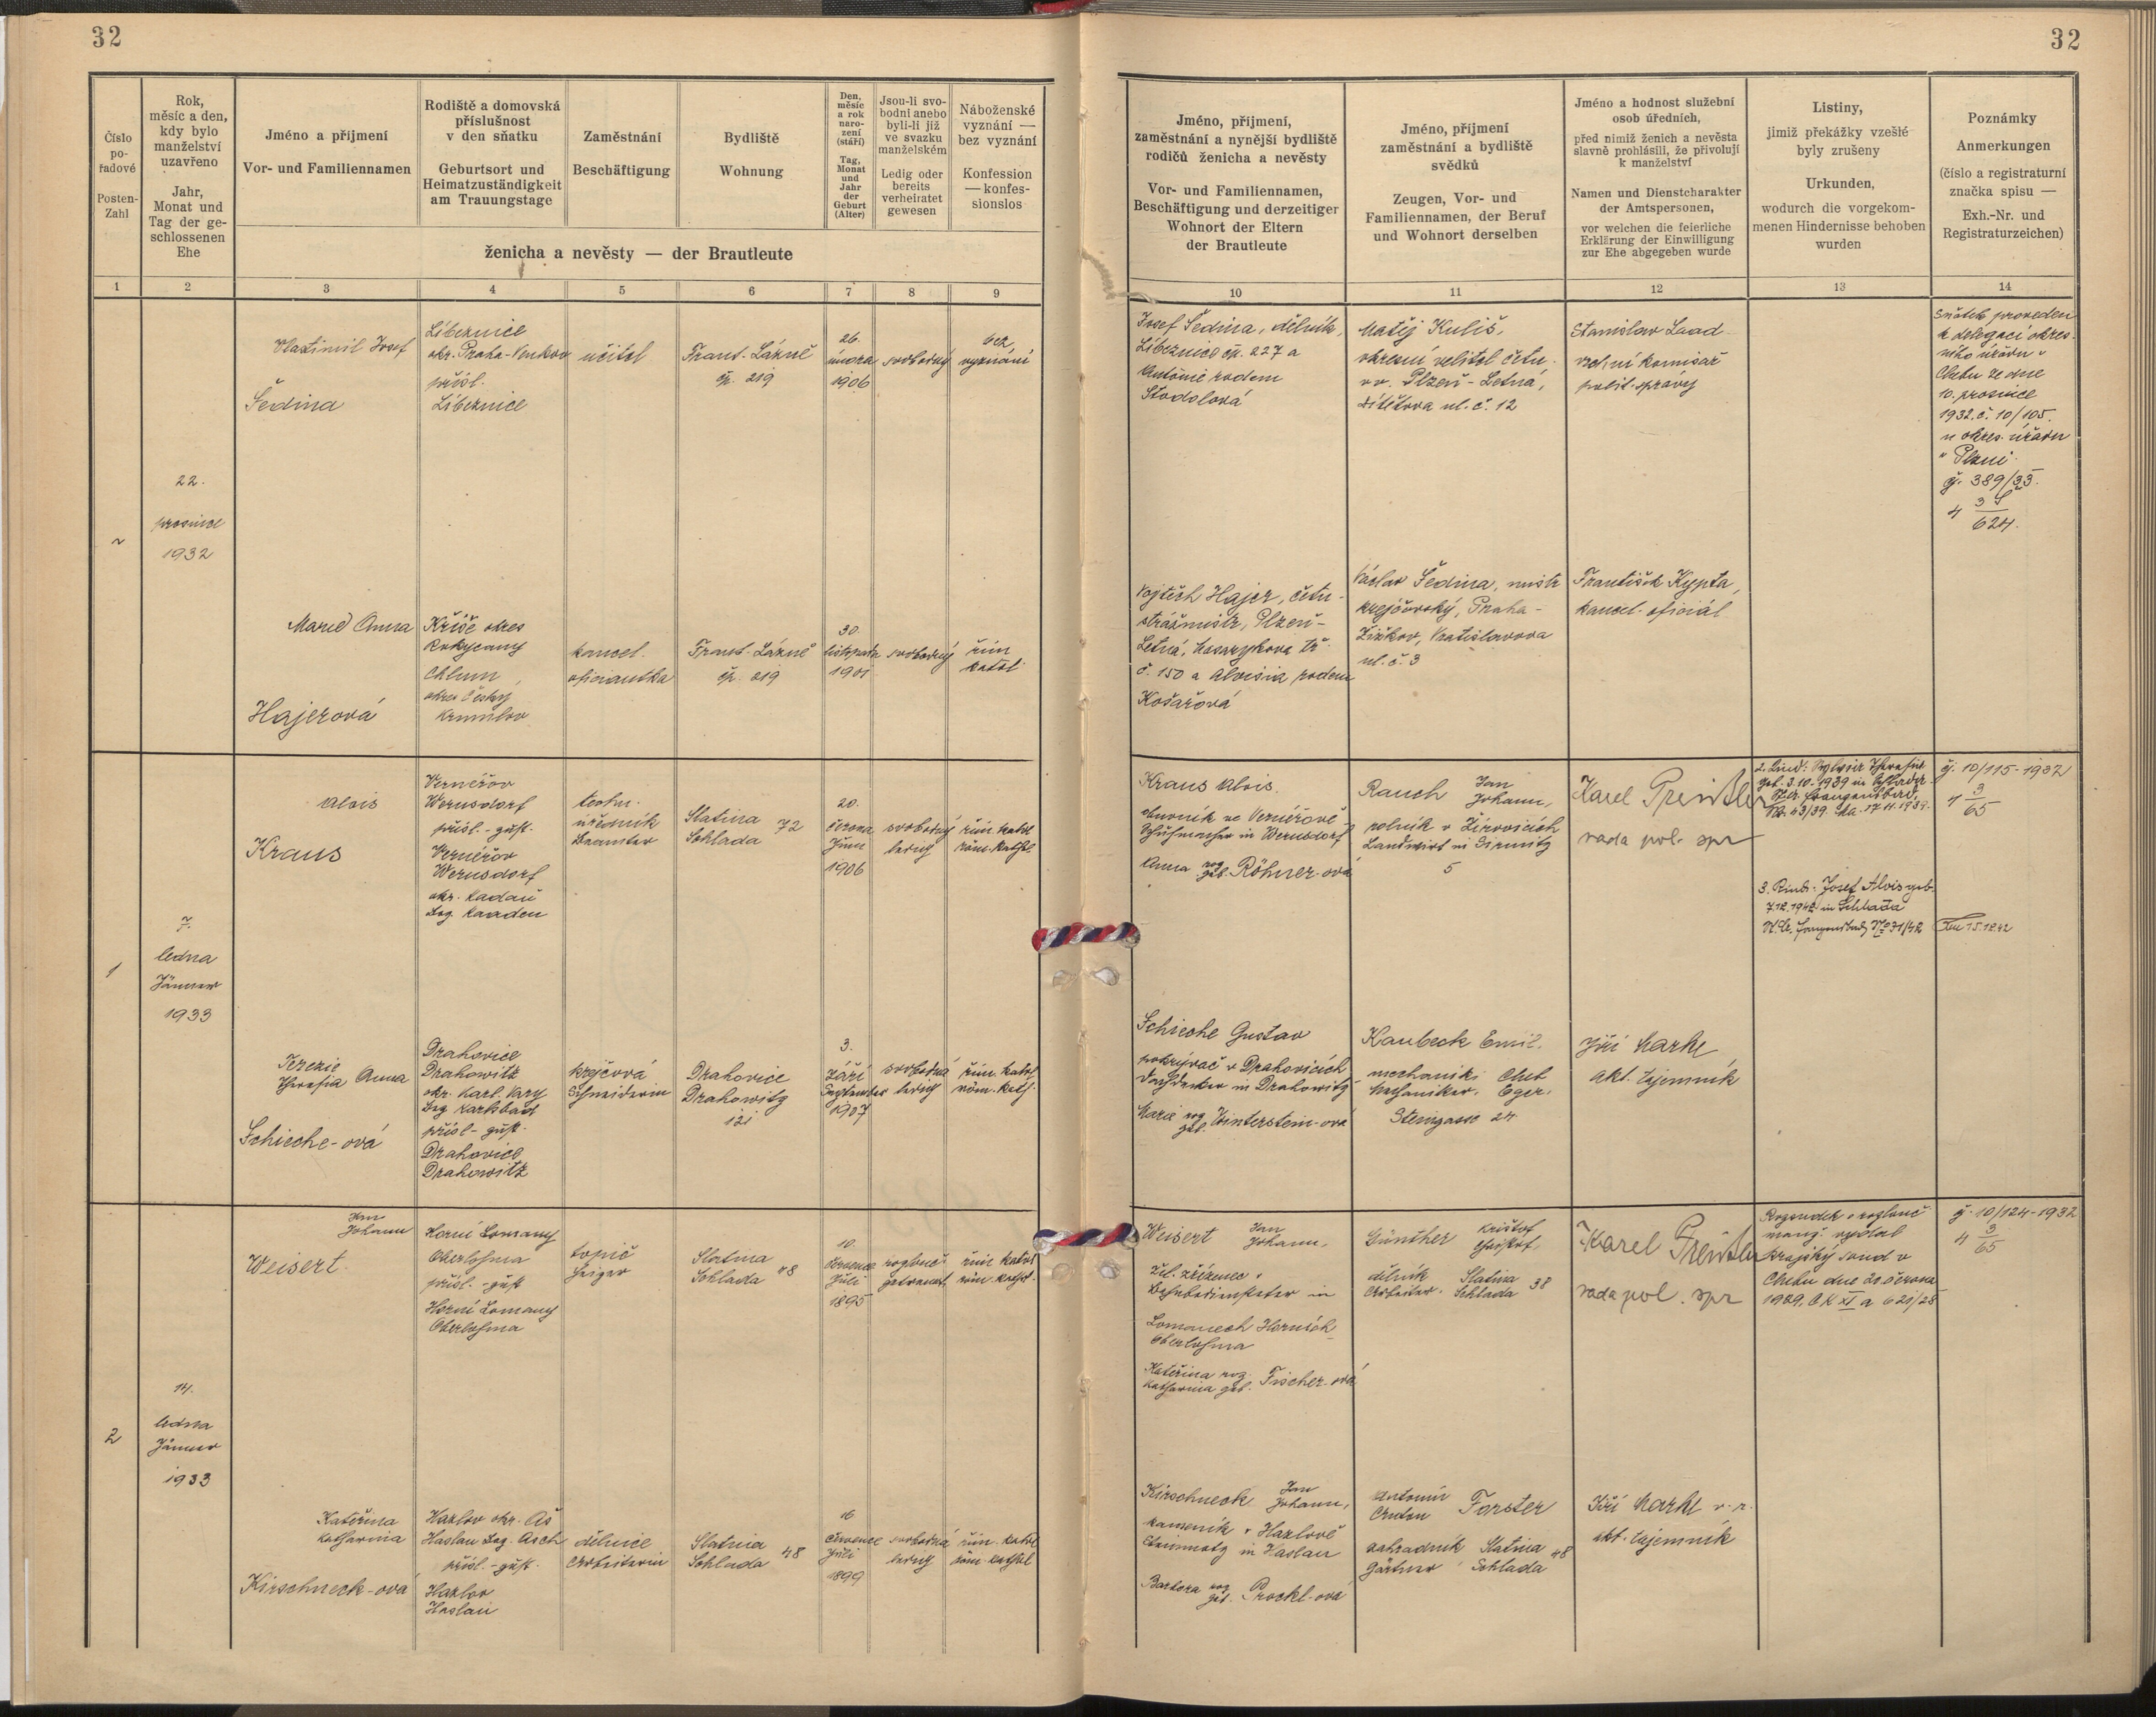 32
32
Číslo
po-
řadové
Posten-
Zahl
Rok,
měsíc a den,
kdy bylo
manželství
uzavřeno
Jahr,
Monat und
Tag der ge-
schlossenen
Ehe
Jméno a příjmení
Vor- und Familiennamen
Rodiště a domovská
příslušnost
v den sňatku
Geburtsort und
Heimatzuständigkeit
am Trauungstage
Zaměstnání
Beschäftigung
Bydliště
Wohnung
Den,
měsíc
a rok
naro-
zení
(stáří)
Tag,
Monat
und
Jahr
der
Geburt
(Alter)
Jsou-li svo-
bodni anebo
byli-li již
ve svazku
manželském
Ledig oder
bereits
verheiratet
gewesen
Náboženské
vyznání —
bez vyznání
Konfession
—konfes-
sionslos
ženicha a nevěsty — der Brautleute
Jméno, příjmení,
zaměstnání a nynější bydliště
rodičů ženicha a nevěsty
Vor- und Familiennamen,
Beschäftigung und derzeitiger
Wohnort der Eltern
der Brautleute
Jméno, příjmení
zaměstnání a bydliště
svědků
Zeugen, Vor- und
Familiennamen, der Beruf
und Wohnort derselben
Jméno a hodnost služební
osob úředních,
před nimiž ženich a nevěsta
slavně prohlásili, že přivolují
k manželství
Namen und Dienstcharakter
der Amtspersonen,
vor welchen die feierliche
Erklärung der Einwilligung
zur Ehe abgegeben wurde
Listiny,
jimiž překážky vzešlé
byly zrušeny
Urkunden,
wodurch die vorgekom-
menen Hindernisse behoben
wurden
Poznámky
Anmerkungen
(číslo a registraturní
značka spisu —
Exh.-Nr. und
Registraturzeichen)
1 2 3 4 5 6 7 8 9 10 11 12 13 14
22.
prosince
1932
Vlastimil Josef
Šedina
Líbeznice
okr. Praha-Venkov
přísl.
Líbeznice
učitel
Frant. Lázně
čp. 219
26.
února
1906
svobodný
bez
vyznání
Josef Šedina, dělník,
Líbeznice čp. 227 a
Antonie rodem
Stodolová
Matěj Kuliš,
okresní velitel četn.
vv. Plzeň-Letná,
ul. č. 12
Stanislav
vrchní komisař
polit. správy
Sňatek proveden
z delegací okres-
ního úřadu v
Chebu ze dne
10. prosince
1932. č. 10/105.
u okres. úřadu
v Plzni
čj. 389/33.
4 3/624.
Marie Anna
Hajerová
Kříše okres
Rokycany
Chlum,
okres Český
Krumlov
kancel.
oficiantka
Frant. Lázně
čp. 219
30.
listopadu
1901
svobodný
řím
katol.
Vojtěch Hajer, četn.
strážmistr, Plzeň-
Letná, Masarykova tř.
č. 150 a Aloisia rodem
Košařová
Václav Šedina, mistr
krejčovský, Praha-
Žižkov, Vratislavova
ul. č. 3
František Kypta,
kancel. oficiál
1
7.
ledna
Jänner
1933
Alois
Kraus
Vernéřov
Wernsdorf
přísl.-zust.
Vernéřov
Wernsdorf
okr. Kadaň
Bez. Kaaden
techn.
úředník
Beamter
Slatina
Schlada 72
20.
června
Juni
1906
svobodný
ledig
řím. katol.
röm. kathol.
Kraus Alois.
obuvník ve Vernéřově
Schuhmacher in Wernsdorf
Anna roz. geb. Röhner-ová
Rauch Jan
Johann,
rolník v Žírovicích
Landwirt in Sirmitz
5
Karel
rada pol. spr
geb. 3.10.1939 in Schlada
Nr. 43/39. 17.11.1939.
3. Kind: Josef Alois geb.
7.12.1942 in Schlada
č. 10/115-1932
4 3/65
15.12.42
Terezie
Theresia Anna
Schieche-ová
Drahovice
Drahowitz
okr. Karl. Vary
Bez. Karlsbad
přísl-zust.
Drahovice
Drahowitz
krejčová
Schneiderin
Drahovice
Drahowitz
121
3.
Září
September
1907
svobodná
ledig
řím. katol.
röm. kath.
Schieche Gustav
pokrývač v Drahovicích
Dachdecker in Drahowitz
Marie roz. geb. Winterstein-ová
Kaubeck Emil.
mechanik Cheb
Mechaniker, Eger.
Steingasse 24
Jiří Markl
akt. tajemník
2
14.
ledna
Jänner
1933
Jan
Johann
Weisert.
Horní Lomany
Oberlohma
přísl.-zust
Horní Lomany
Oberlohma
topič
Heizer
Slatina
Schlada 48
10.
července
Juli
1895
rozlouč.
getrennt
řím. katol.
röm. kathol.
Weisert Jan
Johann,
žel. zřízenec v
Bahnbediensteter in
Lomanech Horních
Oberlohma
Kateřina roz.
Katharina geb. Fischer-ová
Günther Krištof
Christof,
dělník Slatina
Arbeiter, Schlada 38
Karel
rada pol. spr
Rozsudek o rozlouč.
manž. vydal
Krajský soud v
Chebu dne 20. června
1929, Ck XI a 621/28
č. 10/124-1932
4 3/65
Kateřina
Katharina
Kirschneck-ová
Hazlov okr. Aš
Haslau Bez. Asch
přísl.-zust.
Hazlov
Haslau
dělnice
Arbeiterin
Slatina
Schlada 48
16
července
Juli
1899
svobodná
ledig
řím. katol
röm. kathol
Kirschneck Jan
Johann,
kameník v Hazlově
Steinmetz in Haslau
Barbora roz. geb. Prockl-ová
Antonín
Anton Forster
zahradník Slatina
Gärtner Schlada 48
Jiří Markl v.r.
akt. tajemník